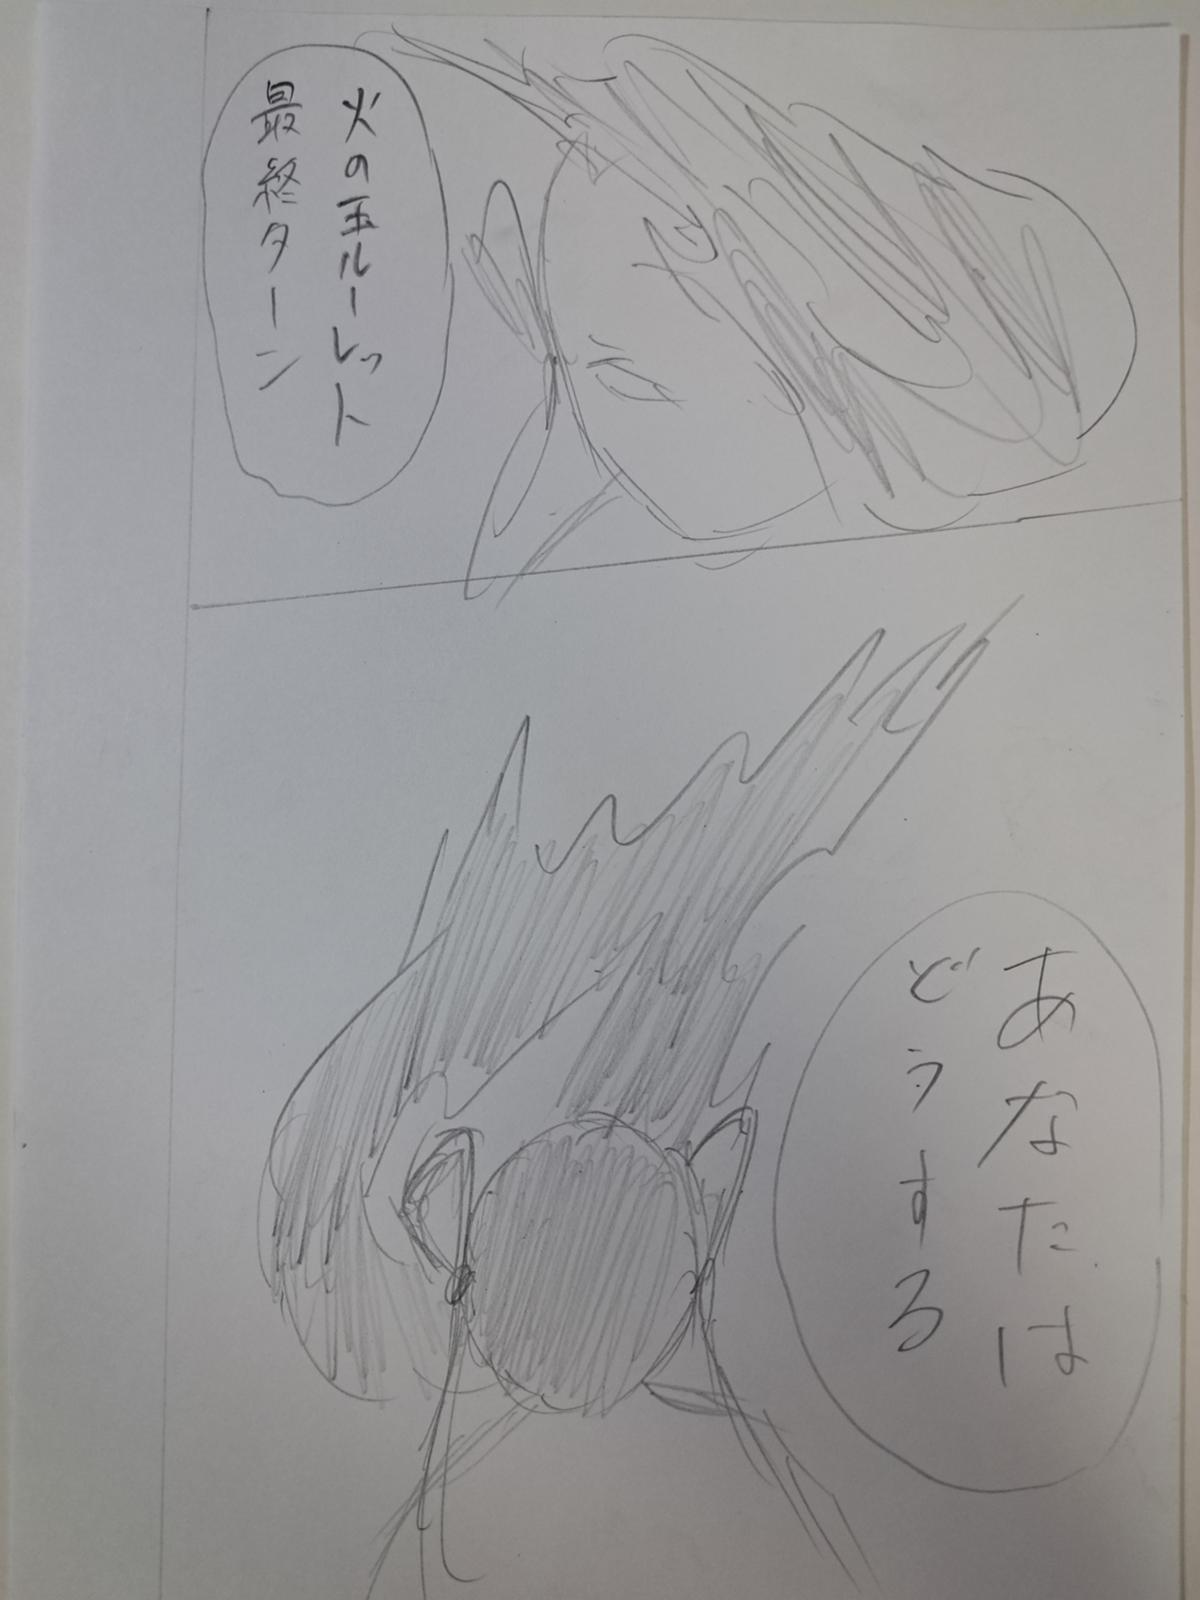 火の玉ルーレット
最終ターン
あなたは
どうする